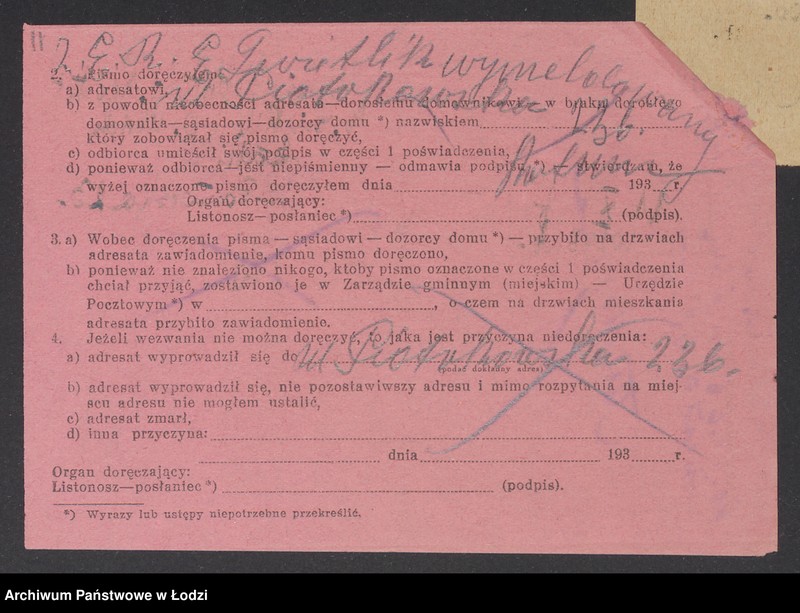 11
wymeldowany
2. Pismo doręczyłem:
a) adresatowi,
ul Piotrkowska
b) z powodu nieobecności adresata—dorosłemu domownikowi— w braku dorosłego
236.
domownika—sąsiadowi—dozorcy domu *) nazwiskiem
który zobowiązał się pismo doręczyć,
c) odbiorca umieścił swój podpis w części 1 poświadczenia,
d) ponieważ odbiorca—jest niepiśmienny — odmawia podpisu *) — stwierdzam, że
wyżej oznaczone pismo doręczyłem dnia 193 r.
Organ doręczający:
Listonosz—posłaniec *) (podpis).
3. a) Wobec doręczenia pisma — sąsiadowi — dozorcy domu *) — przybito na drzwiach
adresata zawiadomienie, komu pismo doręczono,
b) ponieważ nie znaleziono nikogo, ktoby pismo oznaczone w części 1 poświadczenia
chciał przyjąć, zostawiono je w Zarządzie gminnym (miejskim) — Urzędzie
Pocztowym *) w , o czem na drzwiach mieszkania
adresata przybito zawiadomienie.
4. Jeżeli wezwania nie można doręczyć, to jaka jest przyczyna niedoręczenia:
a) adresat wyprowadził się do ul Piotrkowska 236.
(podać dokładny adres)
b) adresat wyprowadził się, nie pozostawiwszy adresu i mimo rozpytania na miej-
scu adresu nie mogłem ustalić,
c) adresat zmarł,
d) inna przyczyna:
dnia 193 r.
Organ doręczający:
Listonosz—posłaniec *) (podpis).
*) Wyrazy lub ustępy niepotrzebne przekreślić.
Archiwum Państwowe w Łodzi